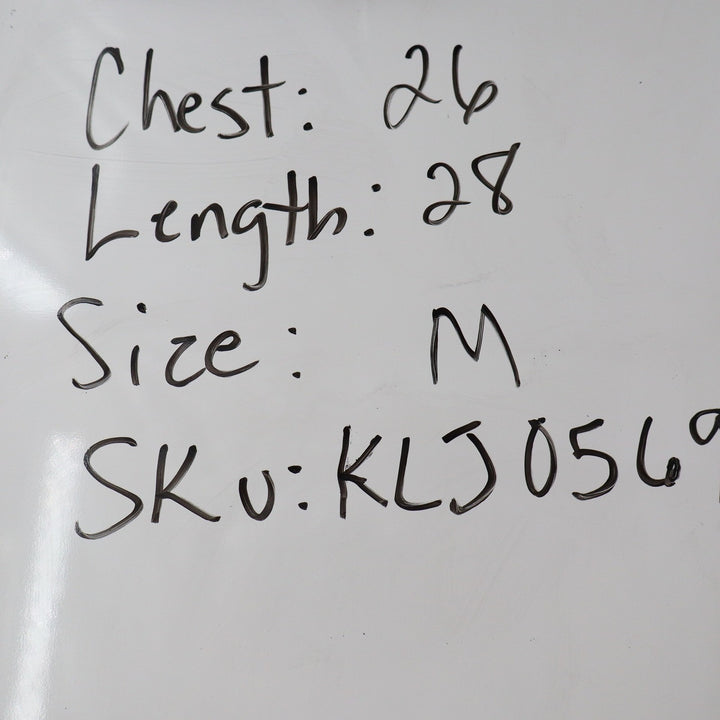 Chest: 26
Length: 28
Size: M
SKU: KLJ0569